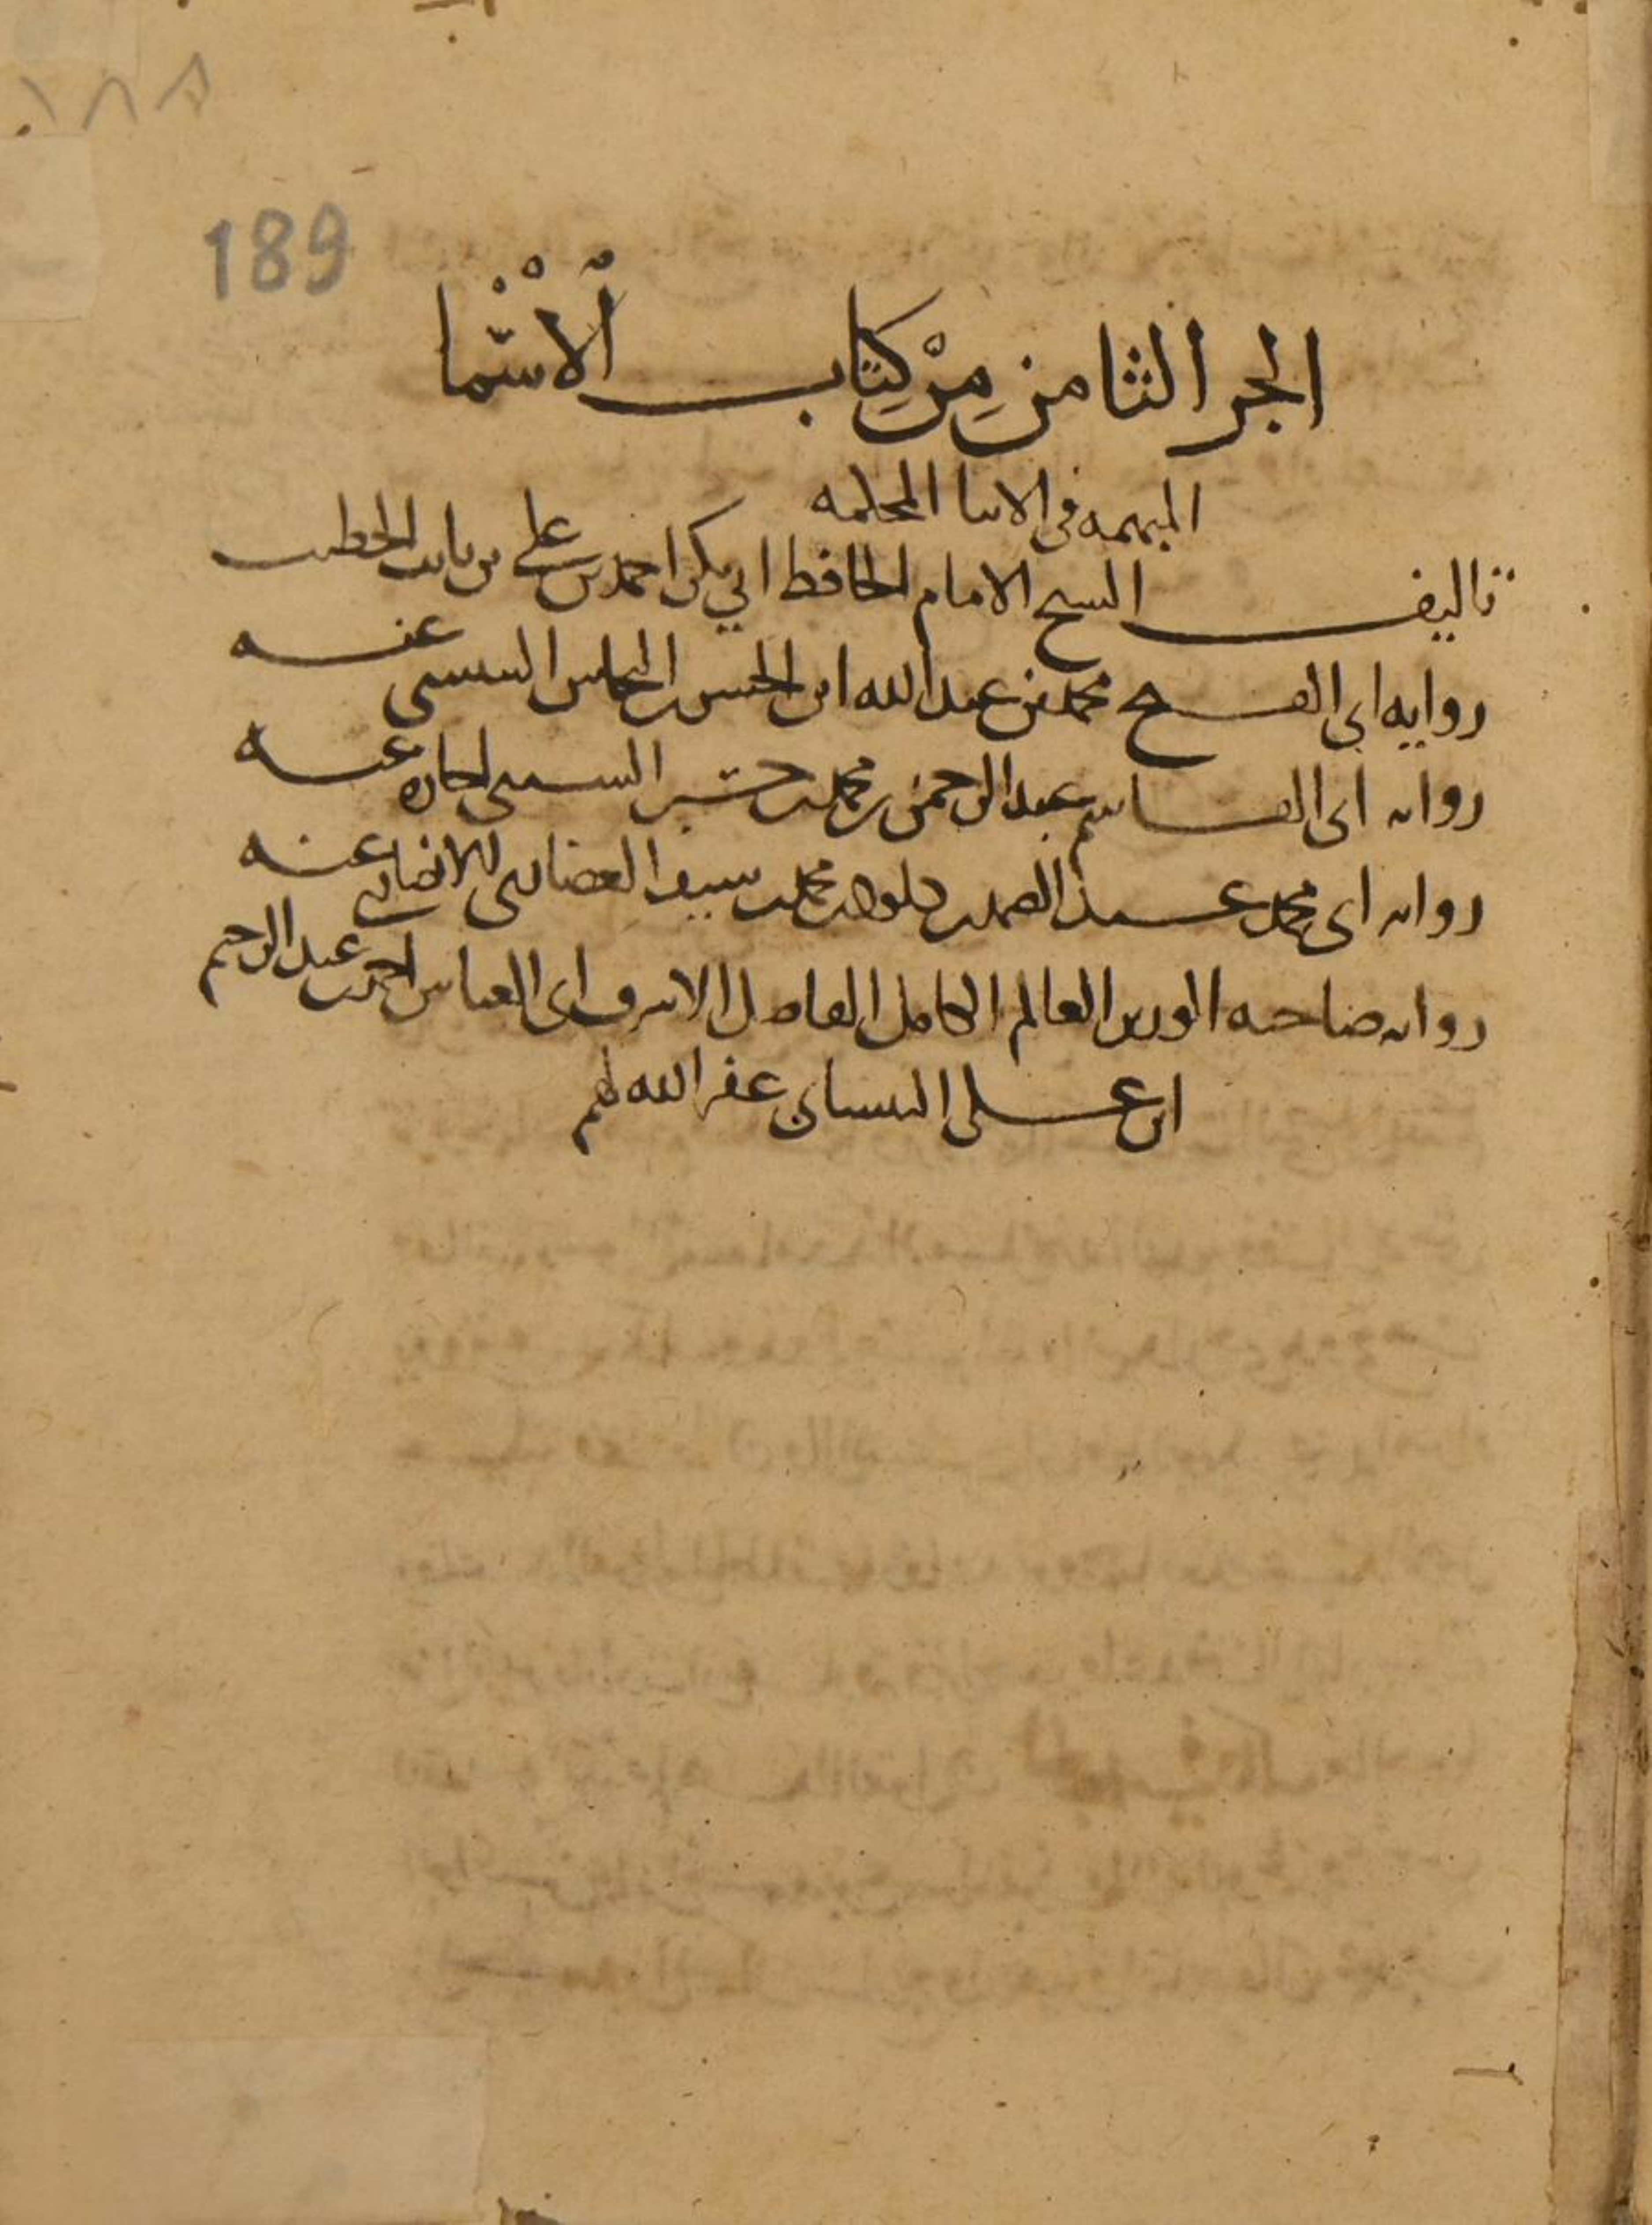 ١٨٩
189
الجز الثامن مِنْ كِتاب الأسْما
المبهمه في الانبا المحكمه
تاليف الشيخ الامام الحافظ ابي بكر احمد بن علي بن ثابت الخطيب
روايه ابي الفتح محمد بن عبد الله ابن الحسن النحاس التنيسي عنه
روايه ابي القاسم عبد الرحمن بن محمد بن حسين السبيي اجازه عنه
روايه ابي محمد عبد الصمد بن داود بن محمد بن سيف الغضايري الانصاري عنه
روايه صاحبه الوزير العالم الكامل الفاضل الاشرف ابي العباس احمد بن عبد الرحيم
ابن علي البيساني غفر الله لهم